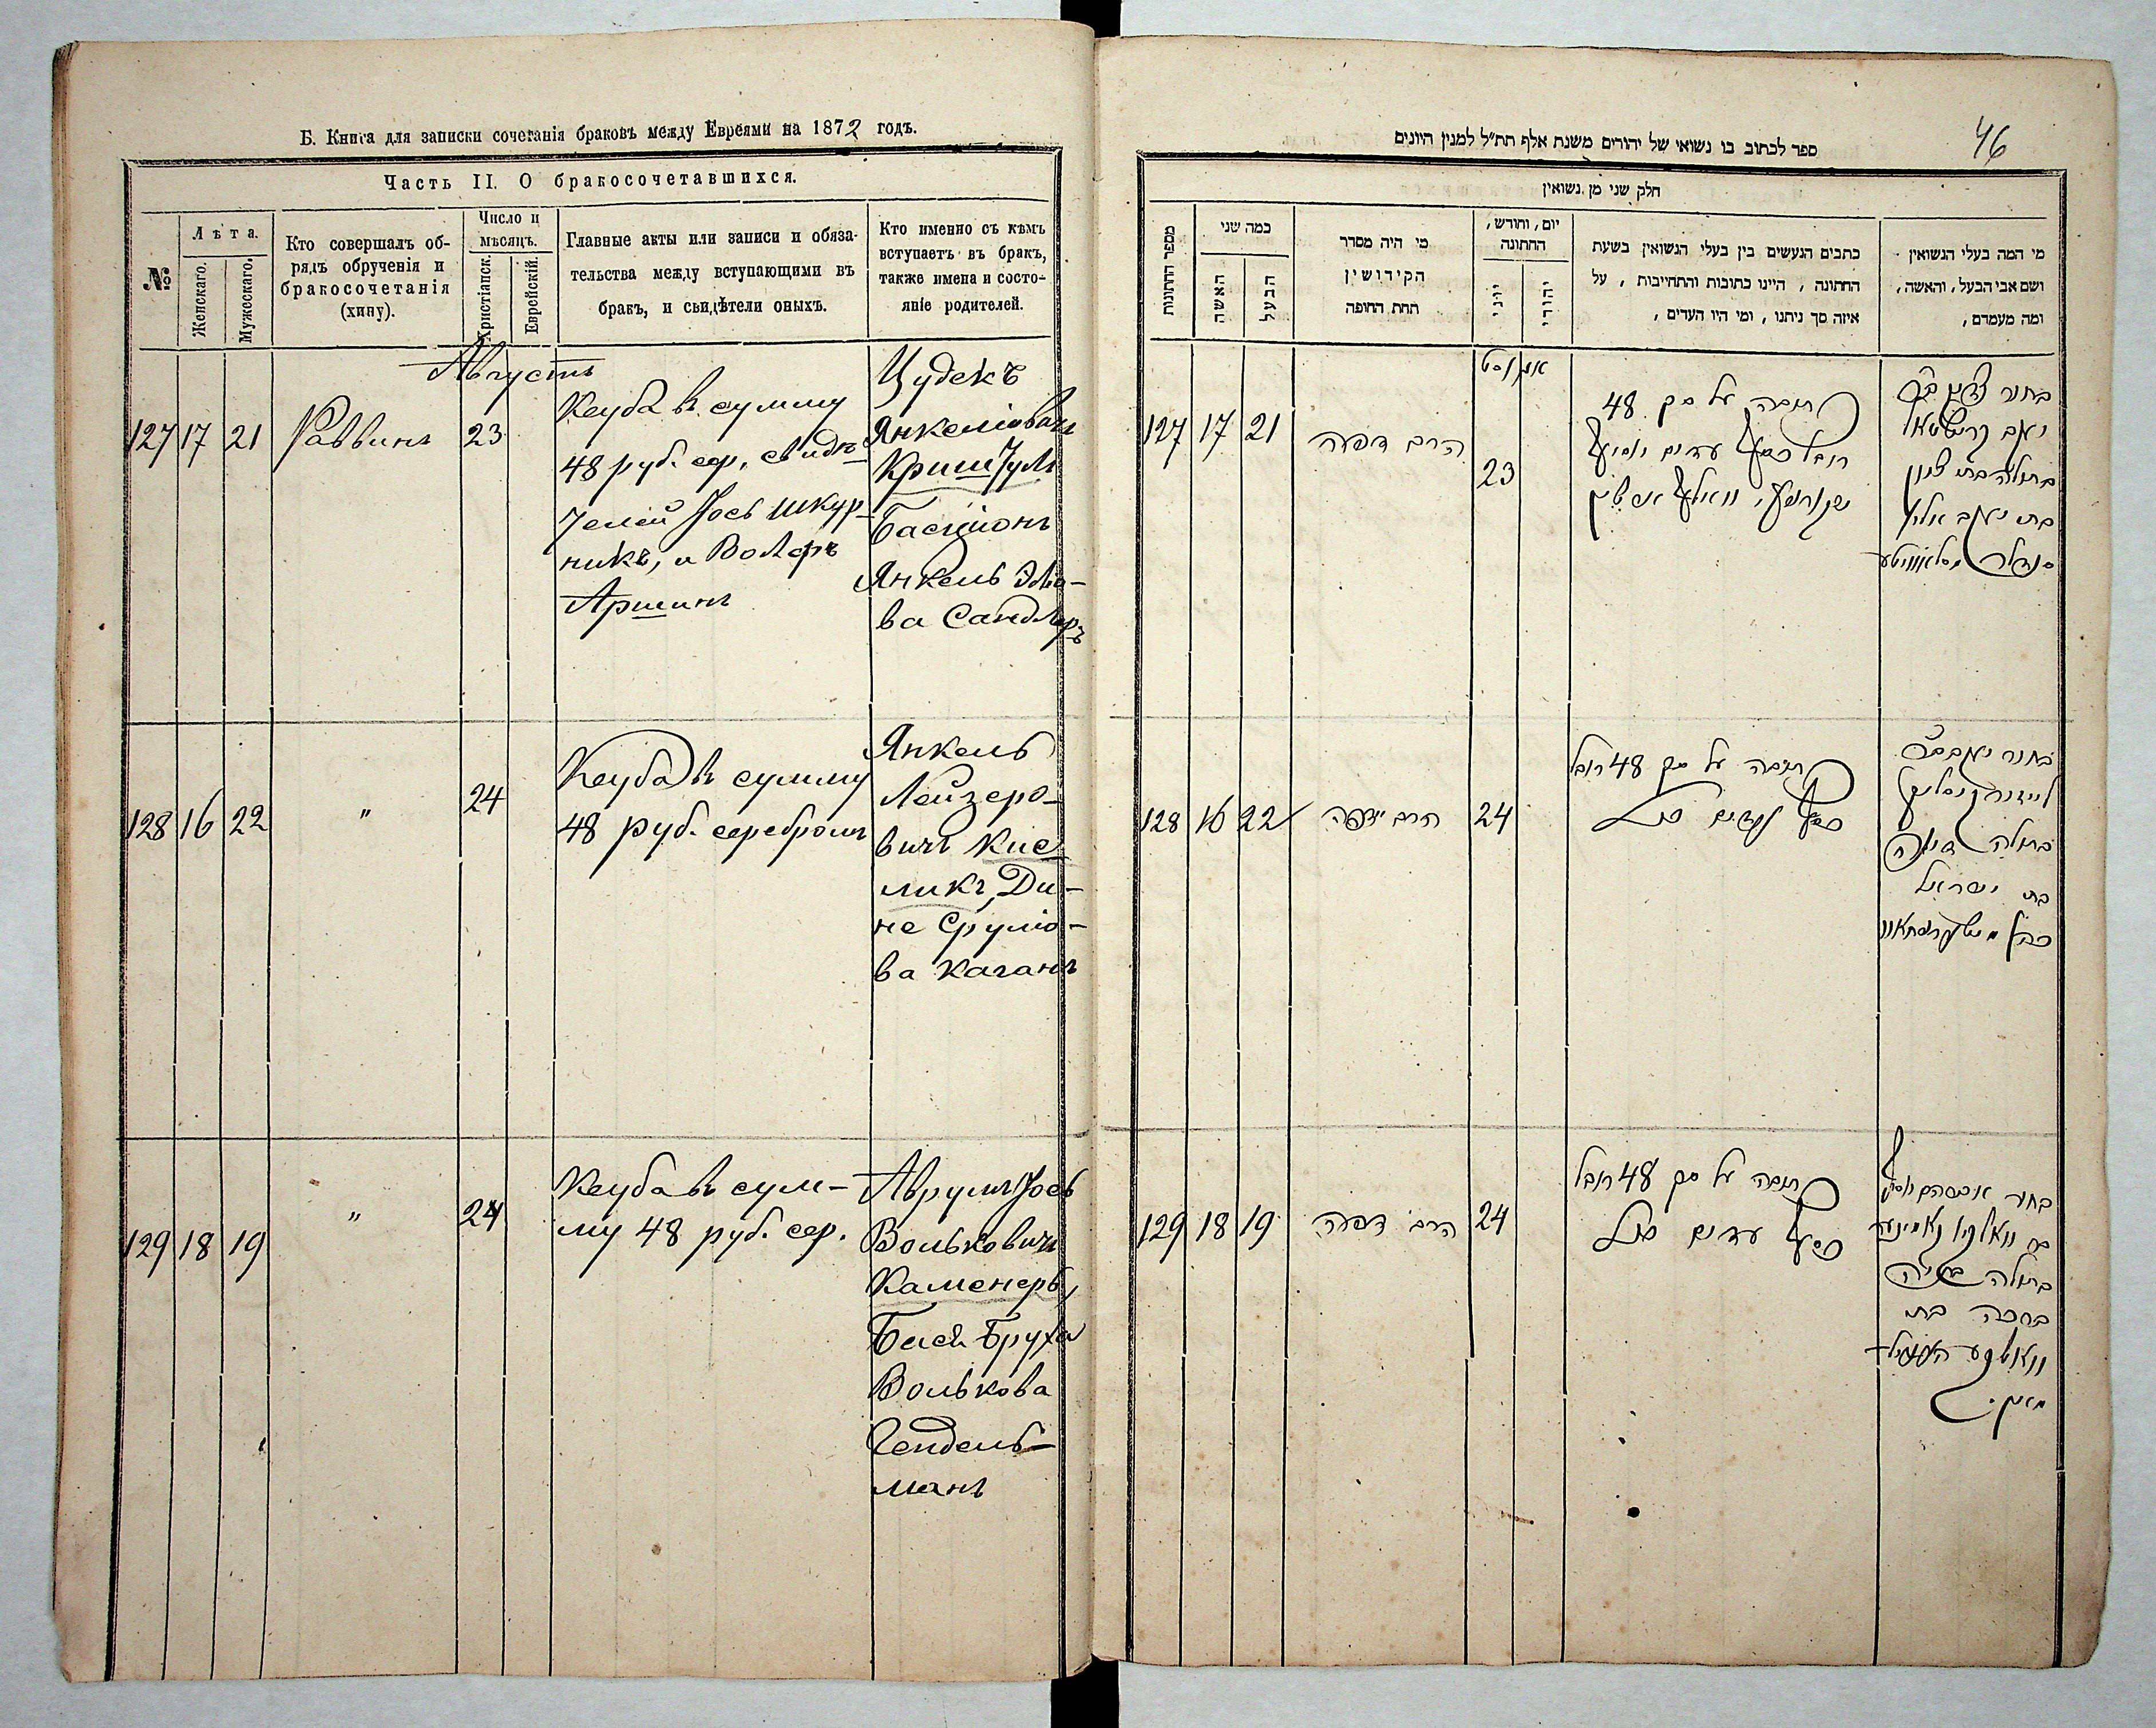 Б. Книга для записки сочетанія браковъ между Евреями на 1872 годъ.
Часть II. О бракосочетавшихся.
№
Лѣта.
Женскаго.
Мужескаго.
Кто совершалъ об-
рядъ обрученія и
бракосочетанія
(хипу).
Число и
мѣсяцъ.
Христіанск.
Еврейскій.
Главные акты или записи и обяза-
тельства между вступающими въ
бракъ, и свидѣтели оныхъ.
Кто именно съ кѣмъ
вступаетъ въ бракъ,
также имена и состо-
яніе родителей.
Августъ
127 17 21 Раввинъ 23
Кеуба въ сумму
48 руб. сер, свидѣ-
телей Іось Шкур-
никъ, и Волфъ
Аршинъ
Цудекъ
Янкеліовичъ
Криштуль
Басціонъ
Янкель Элio-
ва Сандлеръ
128 16 22 " 24
Кеуба въ сумму
48 руб. серебромъ
Янкель
Лейзеро-
вичъ Кис-
ликъ, Ди-
не Сруліо-
ва Каганъ
129 18 19 " 24
Кеуба въ сум-
му 48 руб. сер.
Аврумъ Іось
Вольковичъ
Каменеръ,
Бася Бруха
Волькова
Гендель-
манъ
46
ספר לכתוב בו נשואי של יהודים משנת אלף תת״ל למנין היונים
חלק שני מן נשואין
מספר החתונות
כמה שני
האשה
הבעל
מי היה מסדר
הקידושין
תחת החופה
יום, וחודש,
החתונה
יוני
יהודי
כתבים הנעשים בין בעלי הנשואין בשעת
החתונה, היינו כתובות והתחייבות, על
איזה סך ניתנו, ומי היו העדים,
מי המה בעלי הנשואין
ושם אבי הבעל, והאשה,
ומה מעמדם,
אויגוסט
127 17 21 הרב דפה 23
כתובה על סך 48
רובל כסף עדים יוסף
בתולה בת ציון
128 16 22 הרב דפה 24
כתובה על סך 48 רובל
כסף עדים כנ״ל
בתולה דינה
בת ישראל
129 18 19 הרב דפה 24
כתובה על סך 48 רובל
כסף עדים כנ״ל
בחור אברהם יוסף
בתולה בתיה
ברכה בת